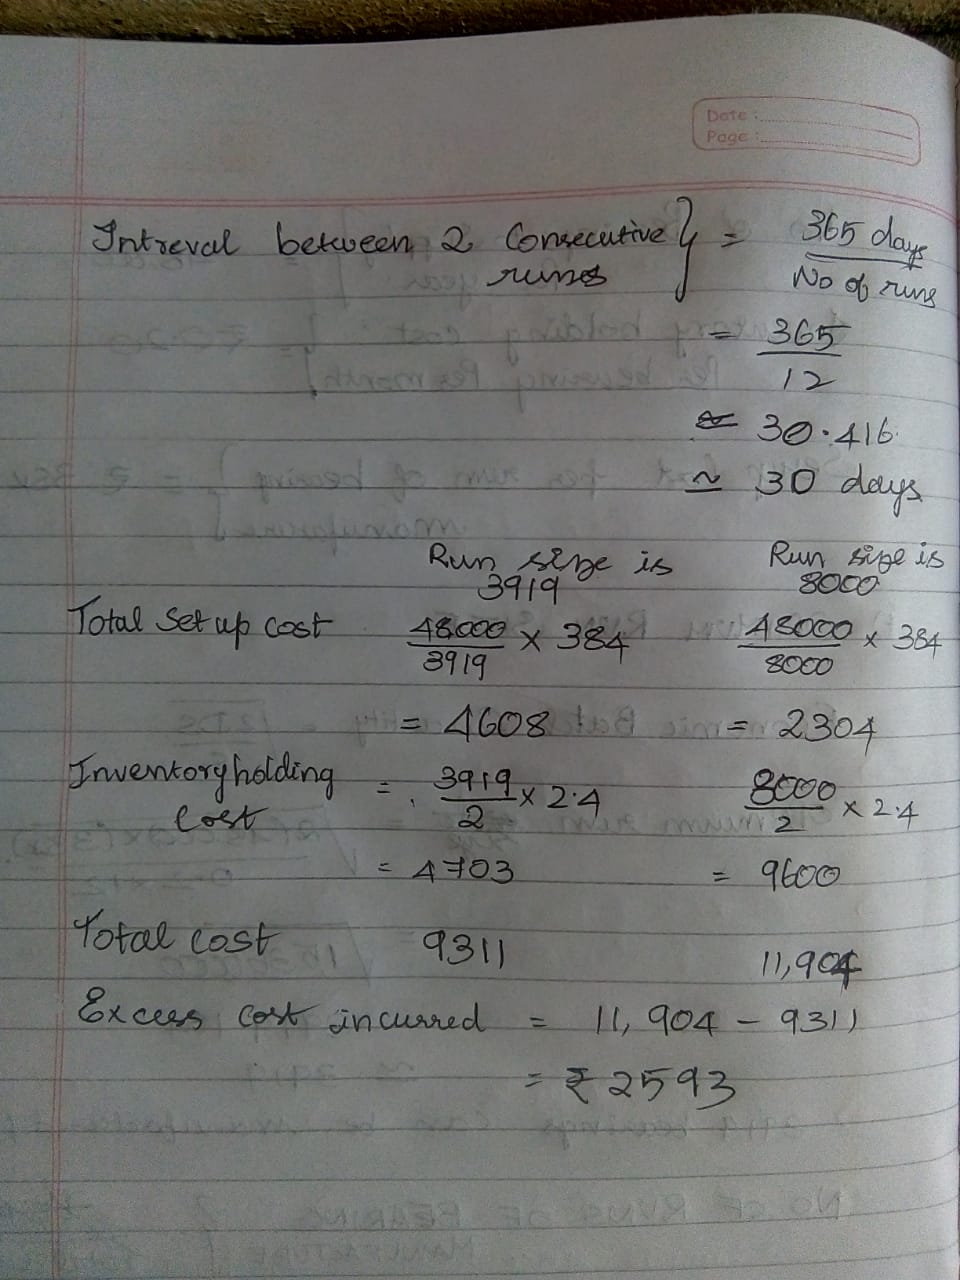 Date :
Page :
Intreval between 2 Consecutive } = 365 days
runs No of runs
= 365
12
≃ 30.416.
≃ 30 days
Run size is Run size is
3919 8000
Total Set up cost 48000 x 384 48000 x 384
3919 8000
= 4608 = 2304
Inventory holding = 3919 x 2.4 8000 x 2.4
Cost 2 2
= 4703 = 9600
Total cost 9311 11,904
Excess cost incurred = 11,904 - 9311
= ₹ 2593